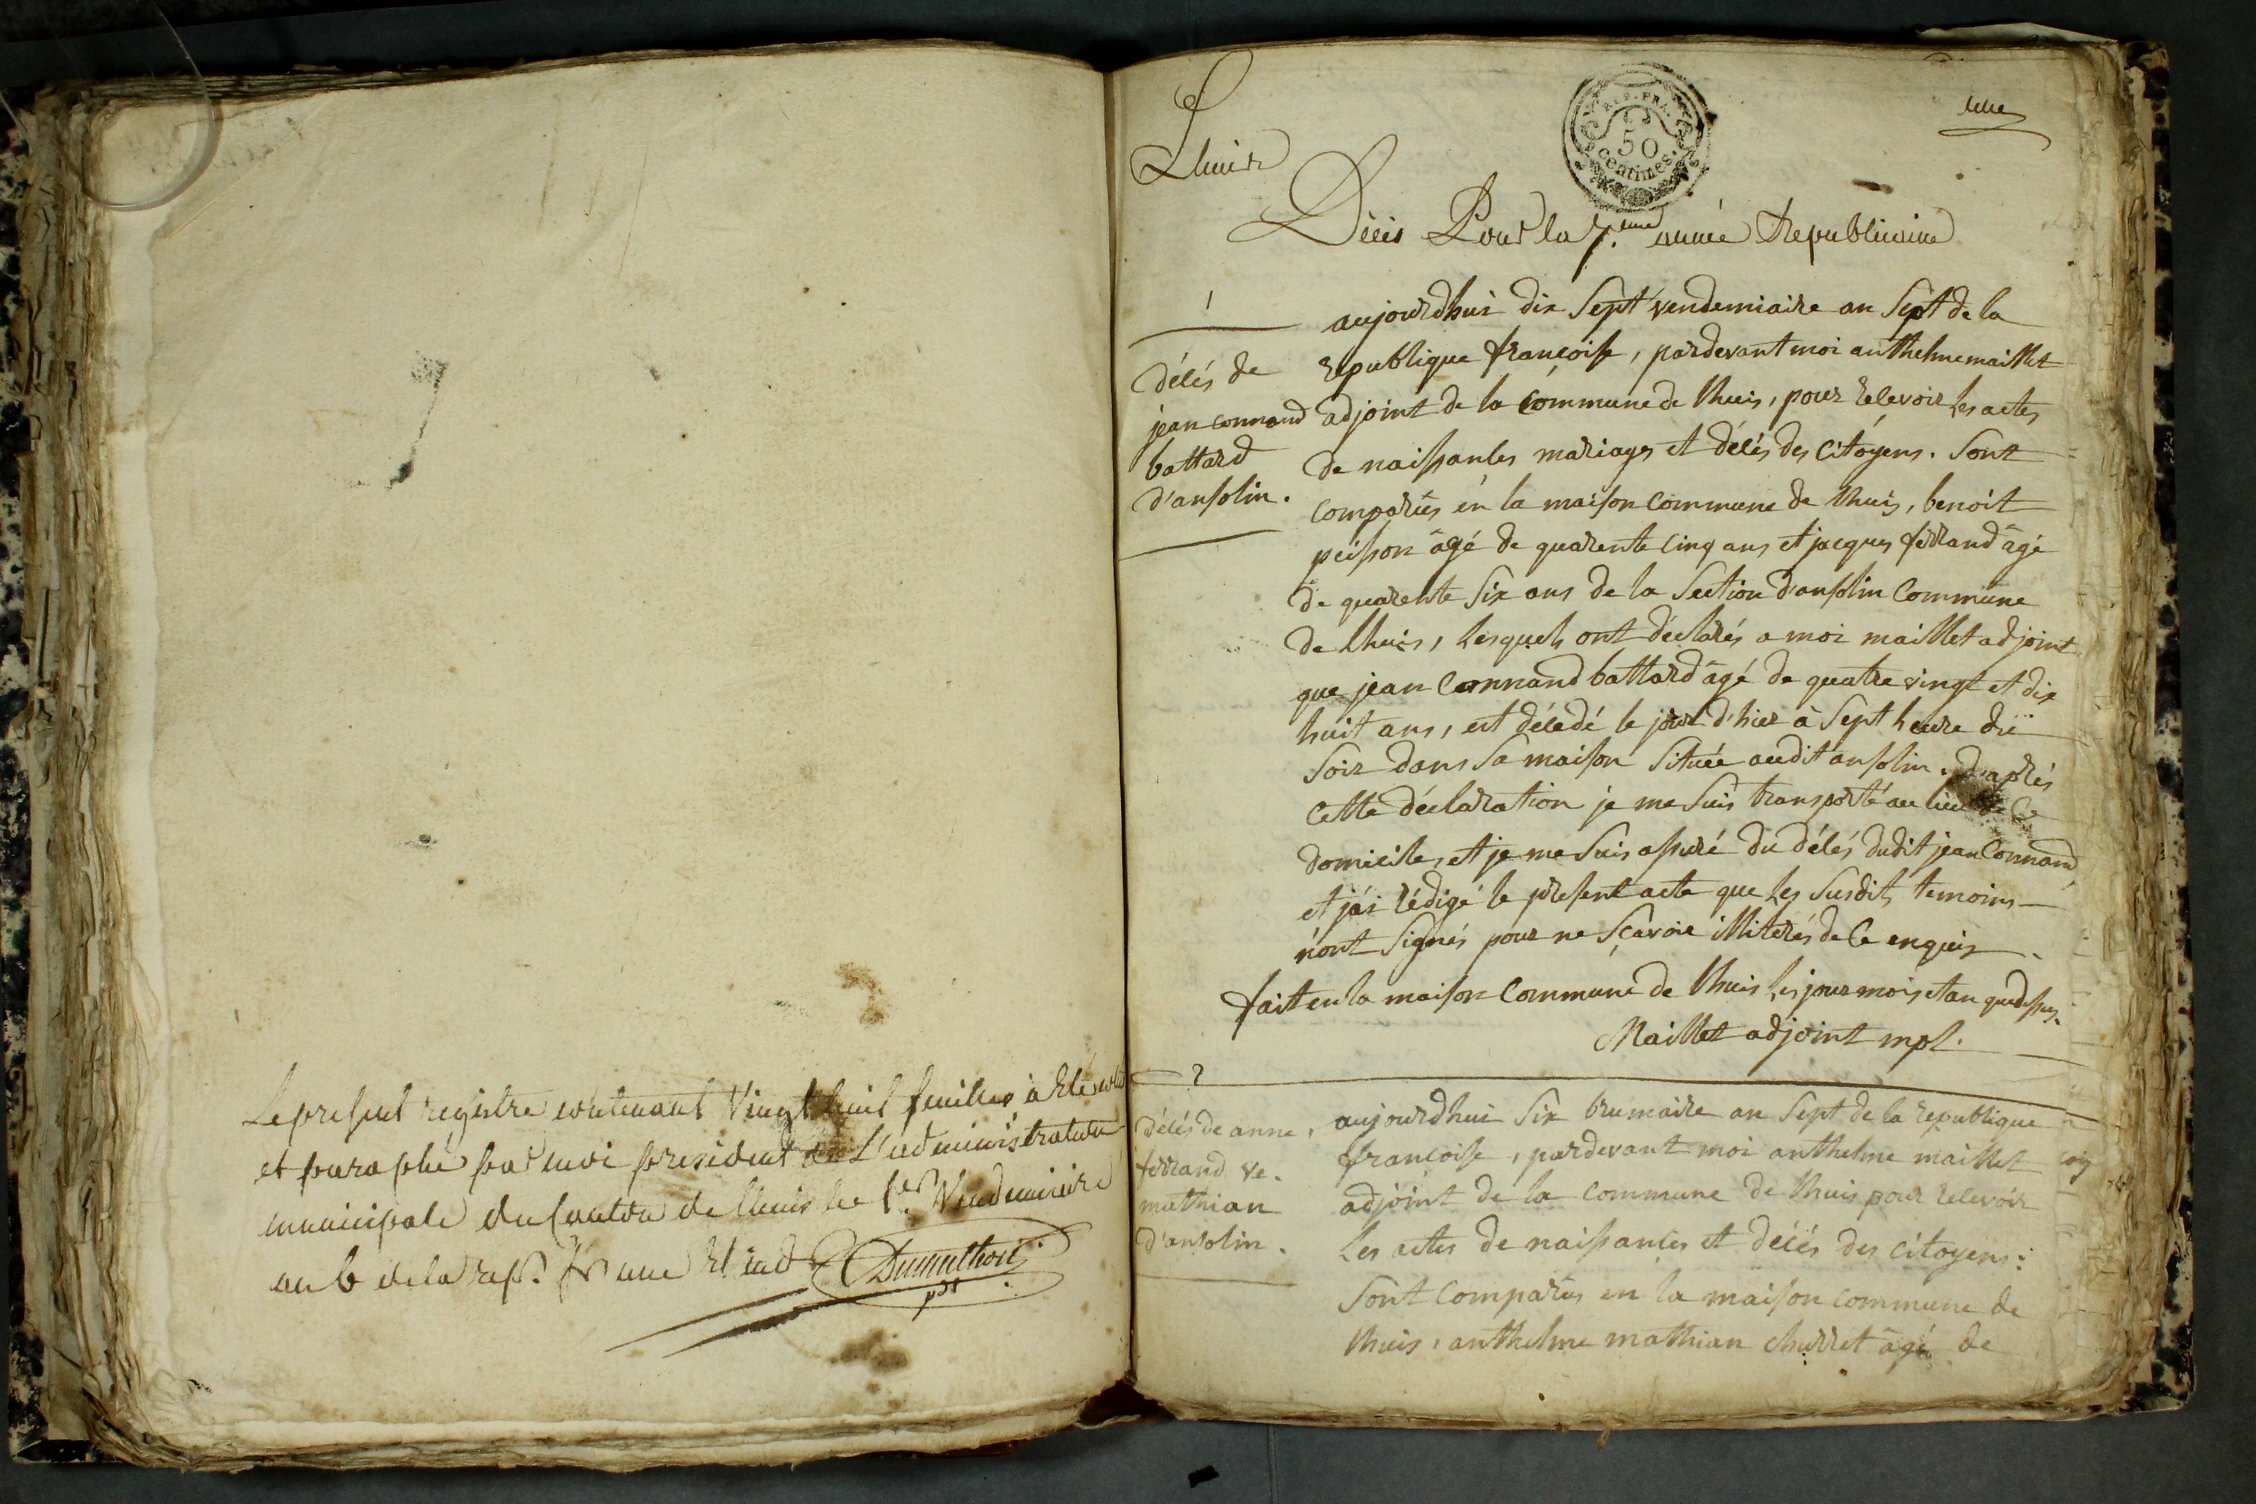 Le present registre contenant Vingt huit feuilles à Eté cotté
et paraphé par moi president de L'administration
municipale du Canton de lhuis le 1er Vendemiaire
an 6 de la rep. f. une Et ind
Dumulhon
pdt
une
Lhuis
REP. FRA.
50
centimes.
Décès Pour la 7.eme année Republicaine
1
décés de
jean connand
battard
d'ansolin.
aujourdhui dix Sept vendemiaire an Sept de la
republique françoise, pardevant moi anthelme maillet
adjoint de la commune de lhuis, pour recevoir les actes
de naissances mariages et décés des citoyens. Sont
comparûs en la maison commune de lhuis, benoit
peisson âgé de quarente cinq ans et jacques ferrand âgé
de quarente Six ans de la Section d'ansolin Commune
de lhuis, lesquels ont déclarés a moi maillet adjoint
que jean Connand battard âgé de quatre vingt et dix
huit ans, est décédé le jour d'hier à Sept heure du
Soir dans Sa maison Située audit ansolin. d'aprés
cette déclaration je me Suis transporté au lieu de ce
domicile, et je me Suis assuré du décés dudit jean Connand
et j'ái rédigé le present acte que les Susdits temoins
n'ont Signés pour ne Sçavoir illiterés de Ce enquis.
fait en la maison Commune de lhuis les jour mois et an que dessus.
Maillet adjoint mpl.
2
décés de anne
ferrand ve.
mathian
d'ansolin.
aujourdhui Six brumaire an Sept de la republique
francoise, pardevant moi anthelme maillet
adjoint de la commune de lhuis pour recevoir
les actes de naissances et décés des citoyens:
Sont Comparûs en la maison commune de
lhuis, anthelme mathian churret âgé de